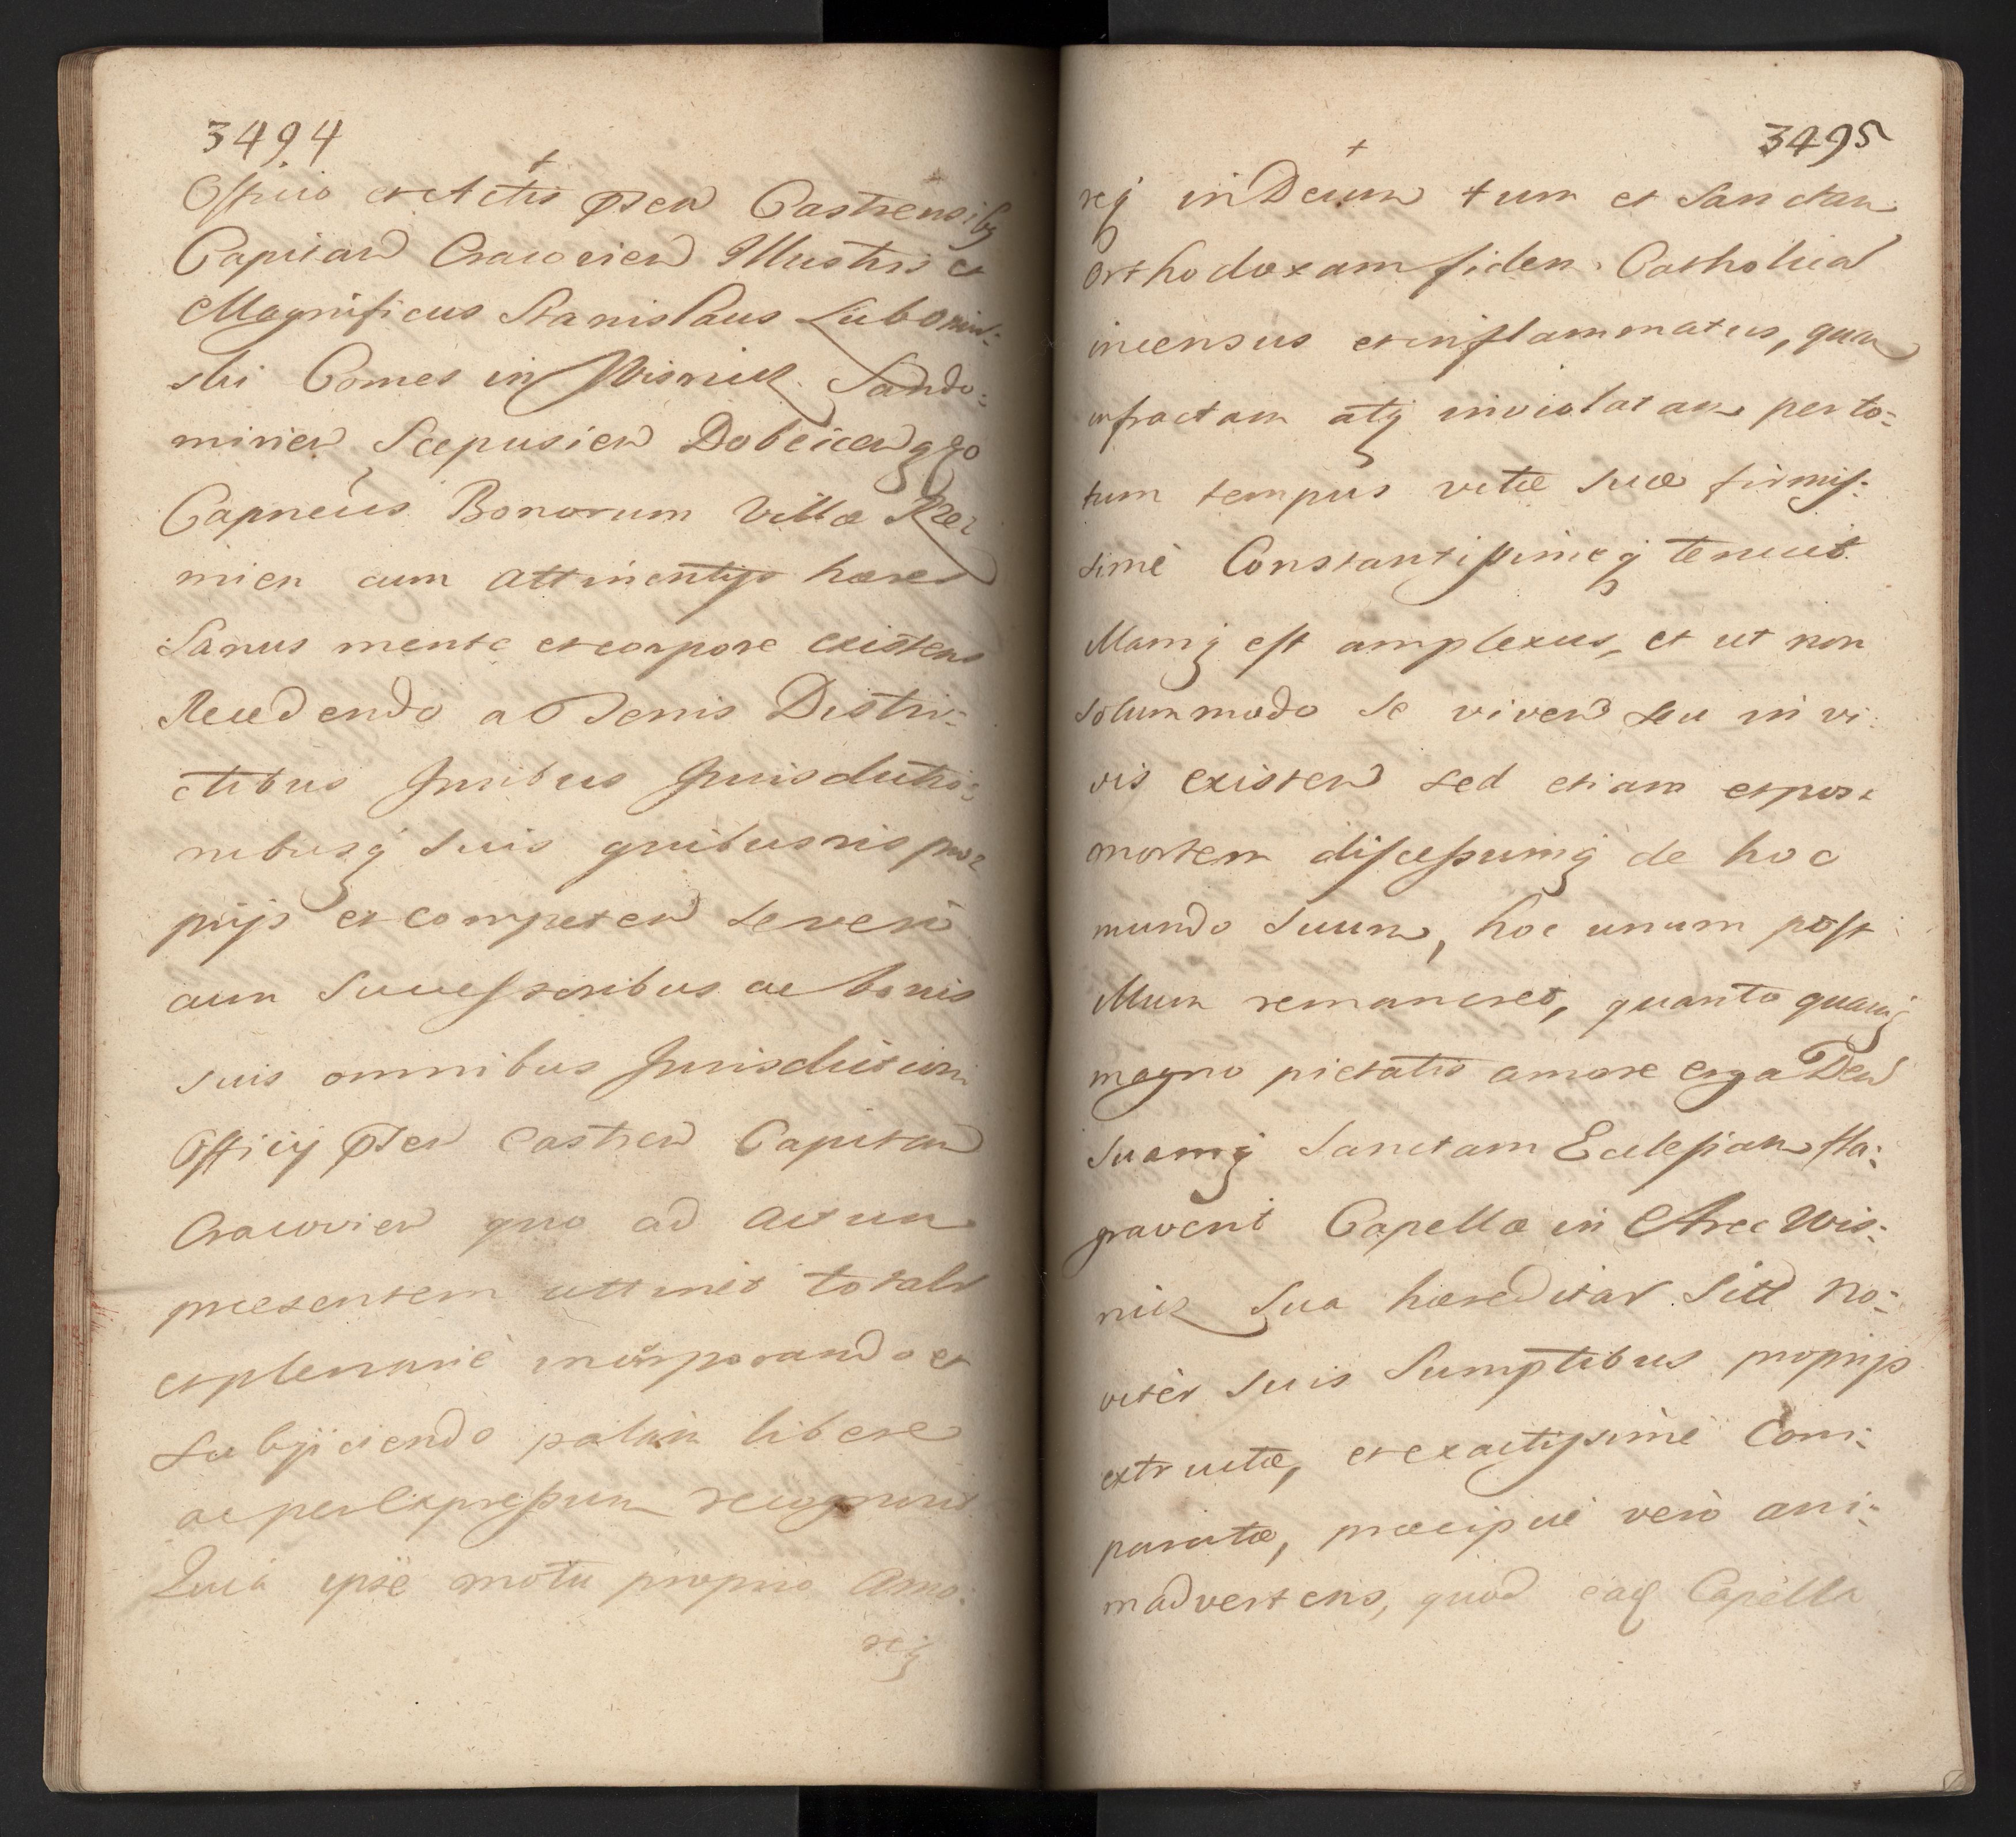 3494
+
Officio et Actis pñten Castrensibq
Capitan Cracovien Illustris et
Magnificus Stanislaus Lubomir-:
ski Comes in Wisnicz Sando-:
mirien Scepusien Dobcicen qqo
Capneus Bonorum Villæ
mien cum attinentijs hæres
Sanus mente et corpore existens
Recedendo a Terris Distri-:
ctibus Juribus Jurisdictio-:
nibusq suis quibusvis pro-
prijs et competen se vero
cum Successoribus ac bonis
suis omnibus Jurisdictioni
Officij pñten Castren Capitan
Cracovien quo ad actum
præsentem attinet totalr
et plenarie incorporando et
subijciendo palam libere
ac per Expressum recognovit
Quia ipse motu proprio Amo-:
req
3495
+
req in Deum tum et Sanctam
Orthodoxam fidem Catholica
incensus et inflammatus, quam
infractam atq inviolatam per to-:
tum tempus vitæ suæ firmis-:
sime Constantissimeq tenuit
Illamq est amplexus, et ut non
solummodo se viven seu in vi-
vis existen sed etiam et post
mortem discessumq de hoc
mundo suum, hoc unum post
Illum remaneret, quanto quamq
magno pietatis amore erga Deu
suamq Sanctam Ecclesiam fla-:
graverit Capellæ in Arce Wis-:
nicz sua hæreditar Sitt No-:
viter suis Sumptibus proprijs
extructæ, et exactissime Com-:
paratæ, præcipue vero ani-:
madvertens, quod eaq Capella